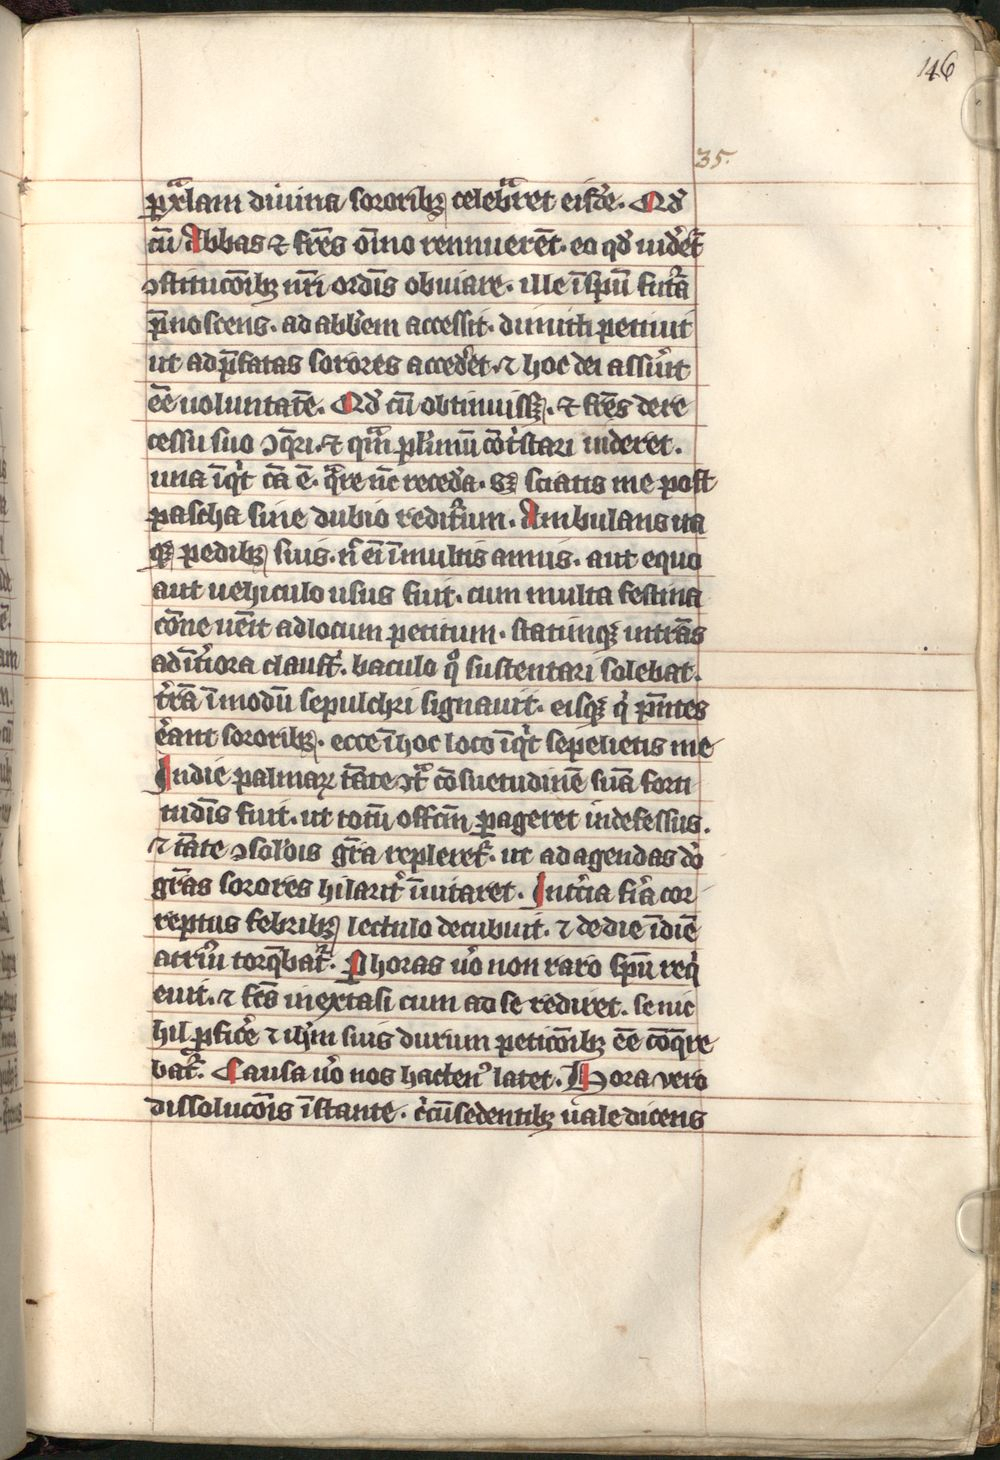 146
35.
ꝑ xͣlam diuina sororibꝫ celebͣret eisdē. Qd̛
cū Abbas ⁊ fr̄es om̄ino rennuerēt. eo qd̛ uidēt̄
ꝯstitucōibꝫ nr̄i ordīs obuiare. ille ī spū futͣa
p̄noscens. ad abbēm accessit. dimitti petiuit
ut ad p̄fatas sorores acced̛et. ⁊ hoc dei assūit
eē uoluntatē. Qd̛ cū obtinuissꝫ. ⁊ fr̄es de re
cessu suo ꝯq̄ri. ⁊ qm̄ plimū cōtͥstari uideret.
una īqͥt cā ē. qͣre nc̄ receda. sꝫ sciatis me post
pascha sine dubio redit̛um. Ambulans ita
qꝫ pedibꝫ suis. n̄ eī ī multis annis. aut equo
aut uehiculo usus fuit. cum multa festina
cōne uēit ad locum petitum. statimqꝫ intrās
ad īt̛iora claust̛. baculo qͦ sustentari solebat.
t̛rā ī modū sepulchri signauit. eisqꝫ qͥ p̄ntes
erant sororibꝫ. ecce ī hoc loco īqͥt sepelietis me
In die palmaꝝ tāte ꝯtͣ cōsuetudinē suā forti
tudīs fuit. ut totū offcīm ꝑageret indefessus.
⁊ tāte ꝯsol̛ois gr̄a repleret̛. ut ad agendas dō
gr̄as sorores hilarit̛ īuitaret. In t̛cia fīa cor
reptus febribꝫ lectulo decubuit. ⁊ de die ī diē
acriū torq̄bat̛. Ꝑ horas ūo non raro spū reqͥ
euit. ⁊ fc̄s in extasi cum ad se rediret. se nic
hil ꝓfic̛e ⁊ ihm̄ suis durum peticōibꝫ eē cōq̄re
bat̛. Causa ūo nos hacten⁹ latet. Hora vero
dissolucōis īstante. c̛cūsedentibꝫ uale dicens